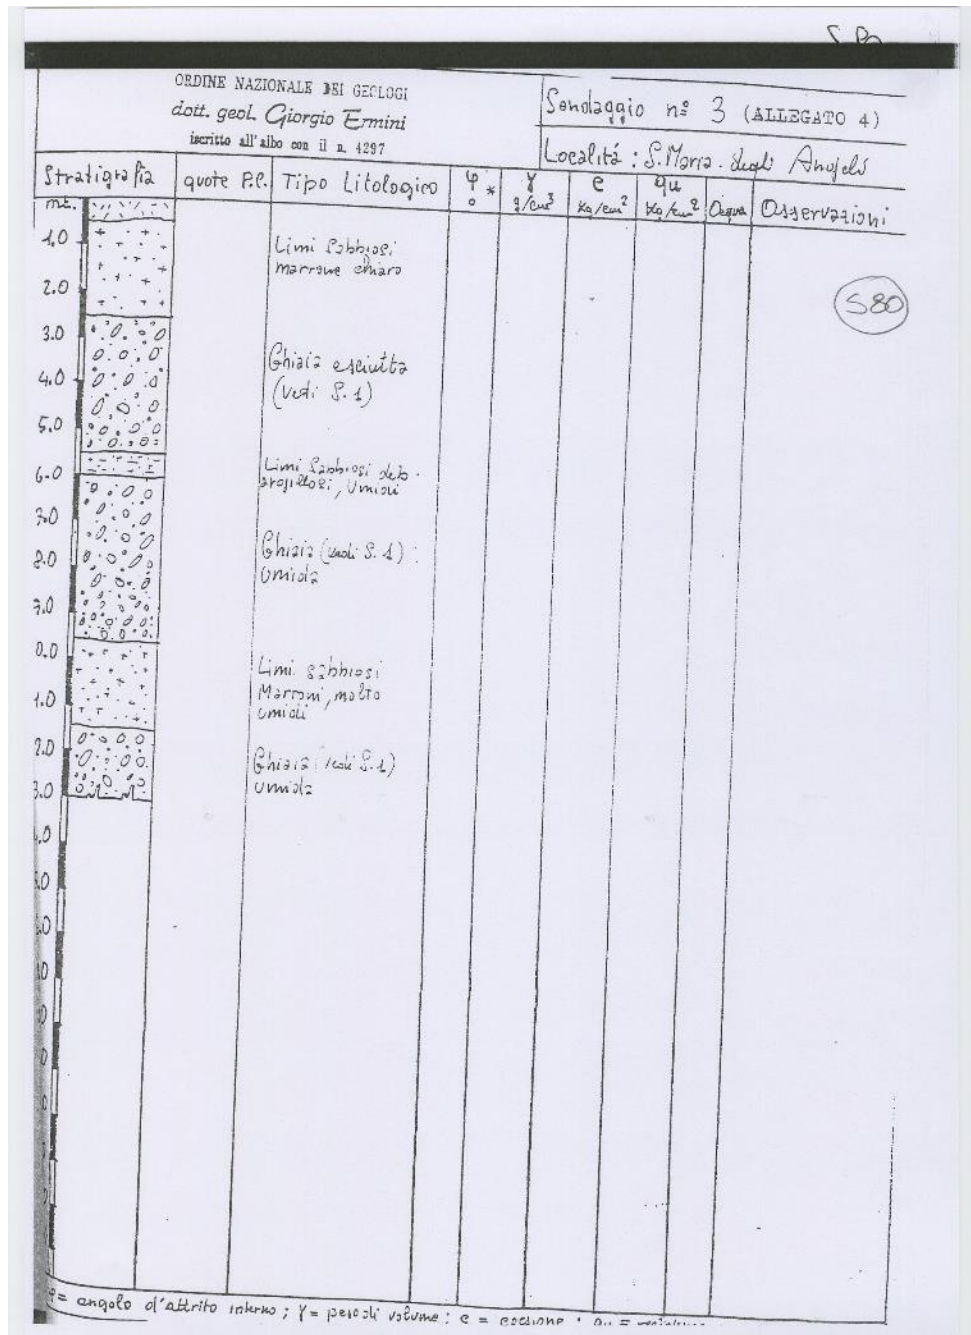 ORDINE NAZIONALE DEI GEOLOGI
dott. geol. Giorgio Ermini
iscritto all'albo con il n. 4297
Sondaggio n° 3 (ALLEGATO 4)
Località: S. Maria degli Angeli
Stratigrafia quote P.C. Tipo Litologico φ * γ c qu Acqua Osservazioni
mt. ° g/cm³ Kg/cm² Kg/cm²
1,0
Limi Sabbiosi
marrone chiaro
2.0
S80
3.0
Ghiaia asciutta
4.0
(Vedi S.1)
5.0
6.0
Limi Sabbiosi deb.
argillosi, Umidi
7.0
8.0
Ghiaia (vedi S.1)
Umida
9.0
0.0
Limi sabbiosi
Marroni, molto
umidi
1.0
2.0
Ghiaia (vedi S.1)
umida
3.0
φ = angolo d'attrito interno; γ = peso di volume; c = coesione; qu =